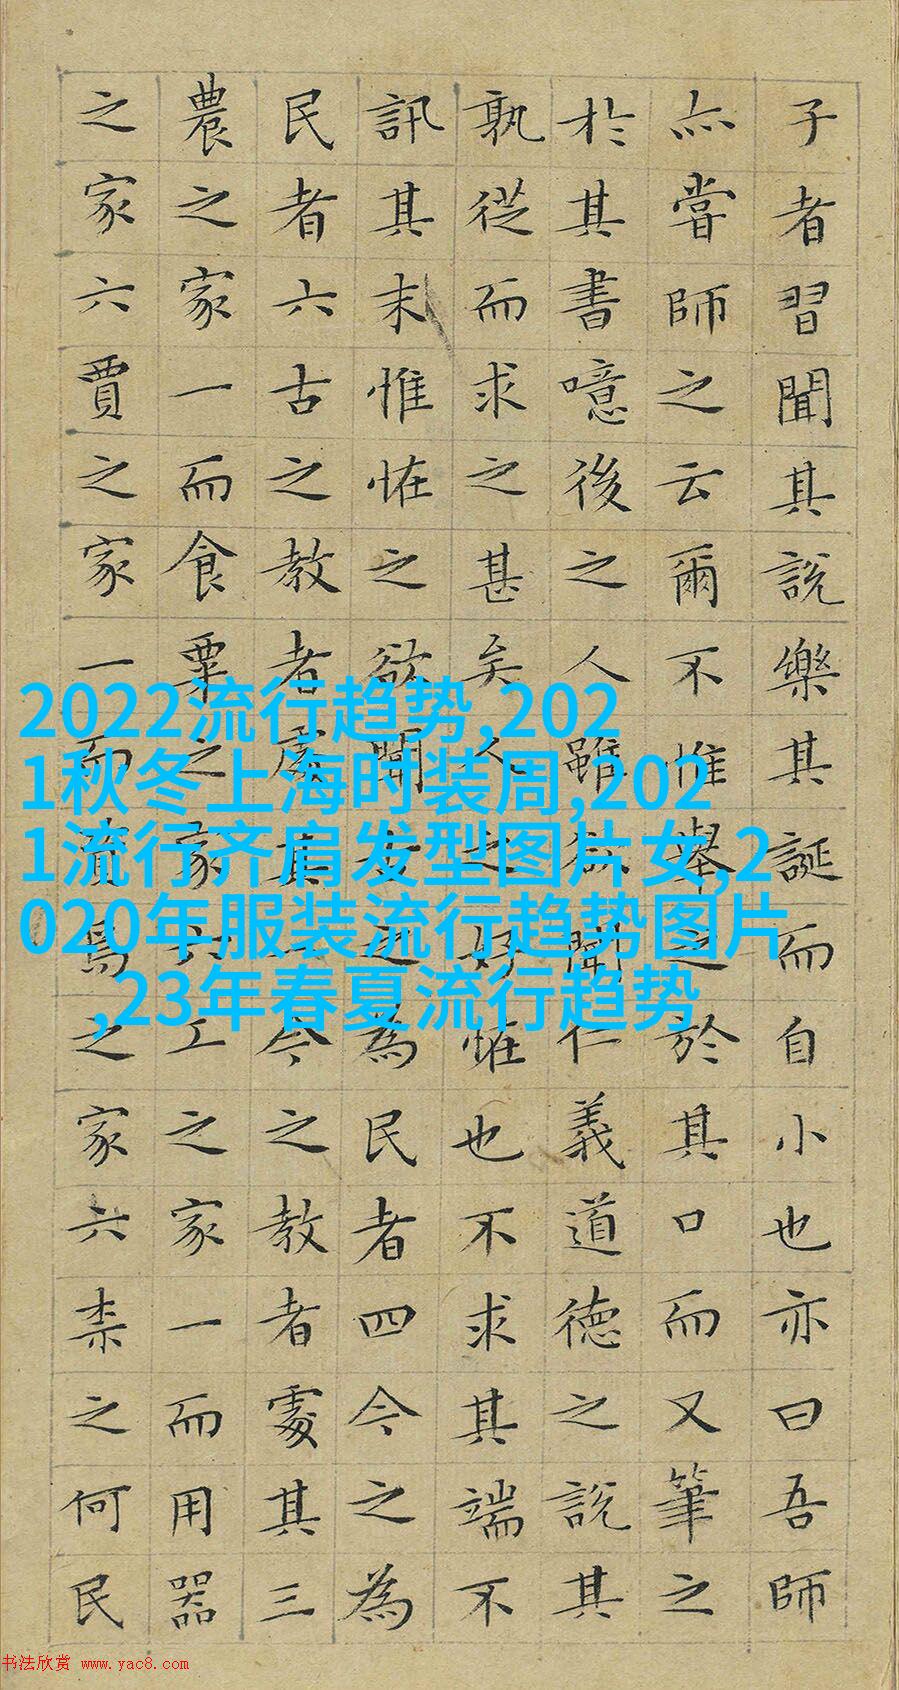 子者習聞其說樂其誕而自小也亦曰吾師
亦嘗師之云爾不惟舉之於其口而又筆之
於其書噫後之人雖欲聞仁義道德之說其
孰從而求之甚矣人之好怪也不求其端不
訊其末惟怪之欲聞古之為民者四今之為
民者六古之教者處其一今之教者處其三
農之家一而食粟之家六工之家一而用器
之家六賈之家一而資焉之家六柰之何民
2022流行趋势,202
1秋冬上海时装周,202
1流行齐肩发型图片女,2
020年服装流行趋势图片
,23年春夏流行趋势
书法欣赏 www.yac8.com